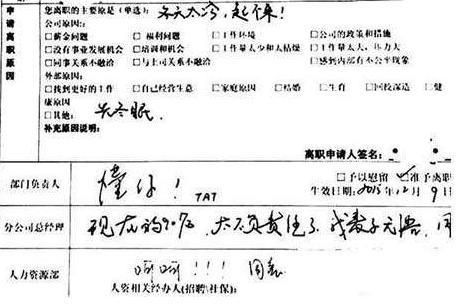 申请离职原因
您离职的主要原是(单选): 冬天太冷,起不来!
公司原因:
□薪金问题 □福利问题 □工作环境 □公司的政策和措施
□没有事业发展机会 □培训和机会 □工作量太少和太枯燥 □工作量太大,压力大
□同事关系不融洽 □与上司关系不融洽 □感到内部有不公平现象
外部原因:
□找到更好的工作 □自己经营生意 □家庭原因 □结婚 □生育 □回校深造 □健
康原因
□其他: 欠冬眠.
补充原因说明:
离职申请人签名:
部门负责人 懂你! TAT □予以慰留 ☑准予离职
生效日期: 2015年12月9日
分公司总经理 现在的90后,太不负责任了,我表示无语,同
人力资源部 呵呵!!! 同意
人资相关经办人(招聘\社保):